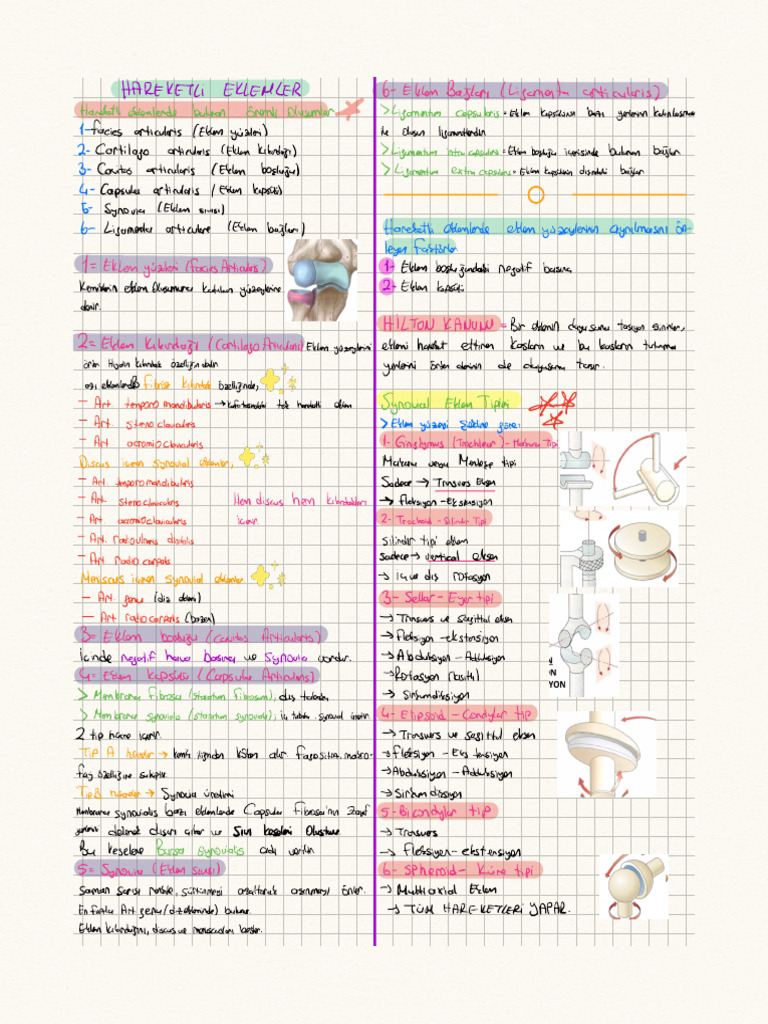 HAREKETLİ EKLEMLER
Hareketli eklemlerde bulunan önemli oluşumlar
1-facies articularis (Eklem yüzleri)
2- Cartilago articularis (Eklem kıkırdağı)
3- Cavitas articularis (Eklem boşluğu)
4- Capsula articularis (Eklem kapsülü)
5- Synovia (Eklem sıvısı)
6- Ligamenta articulare (Eklem bağları)
1= Eklem yüzleri (facies Articularis)
Kemiklerin eklem oluşumuna katılan yüzeylerine
denir.
2= Eklem Kıkırdağı (Cartilago Articularis) Eklem yüzeylerini
örten Hyalin kıkırdak özelliğindedir
bazı eklemlerde fibröz kıkırdak özelliğinde,
- Art. temporo mandibularis → kafa iskeletindeki tek hareketli eklem
- Art. sternoclavicularis
- Art. acromioclavicularis
Discus içeren synovial eklemler,
- Art. temporo mandibularis
- Art. sternoclavicularis
Hem discus hem kıkırdakları
- Art. acromioclavicularis
içerir
- Art. radioulnaris distalis
- Art. radio carpalis
Meniscus içeren synovial eklemler
- Art. genu (diz eklemi)
- Art. radiocarpalis (bazen)
3= Eklem boşluğu (cavitas Articularis)
İçinde negatif hava basıncı ve synovia vardır.
4= Eklem kapsülü (Capsula Articularis)
> Membrana fibrosa (stratum fibrosum), dış tabaka,
> Membrana synovialis (stratum synoviale), iç tabaka, synovial üretir.
2 tip hücre içerir.
Tip A hücreler → kemik iliğinden köken alır fagositoz, makro-
faj özelliğine sahiptir.
Tip B hücreler → Synovia üretimi
Membrana synovialis bazı eklemlerde Capsula Fibrosa'nın zayıf
yerlerini delerek dışarı çıkar ve Sıvı keseleri Oluşturur
Bu keselere Bursa synovialis adı verilir.
5= Synovia (Eklem sıvısı)
Saman sarısı renkte, sürtünmeyi azaltarak aşınmayı önler.
En fazla Art genu (diz ekleminde) bulunur.
Eklem kıkırdağını, discus ve meniscusları besler.
6- Eklem Bağları (Ligamenta articularis)
> Ligamentum capsularis = Eklem kapsülünün bazı yerlerinin kalınlaşması
ile oluşan ligamentlerdir
> Ligamentum intra capsularis = Eklem boşluğu içerisinde bulunan bağlar
> Ligamentum extra capsularis = Eklem kapsülünün dışındaki bağlar
Hareketli eklemlerde eklem yüzeylerinin ayrılmasını ön-
leyen faktörler
1- Eklem boşluğundaki negatif basınç
2- Eklem kapsülü
HİLTON KANUNU = Bir eklemin duyusunu taşıyan sinirler,
eklemi hareket ettiren kasların ve bu kasların tutunma
yerlerini örten derinin de duyusunu taşır.
Synovial Eklem Tipleri
> Eklem yüzeyi şekline göre:
1- Ginglymus (Trochlear) - Makara Tip
Makara veya Menteşe tipi
Sadece → Transvers Eksen
→ fleksiyon - Ekstensiyon
2- Trochoid - Silindir Tipi
Silindir tipi eklem
Sadece → vertical eksen
→ iç ve dış rotasyon
3- Sellar - Eyer tipi
→ Transvers ve sagittal eksen
→ Fleksiyon - ekstensiyon
→ Abduksiyon - Adduksiyon
→ Rotasyon (kısıtlı)
→ Sirkumdiksiyon
N
ON
YON
4- Elipsoid - Condylar tip
→ Transvers ve sagittal eksen
→ fleksiyon - Ekstensiyon
→ Abduksiyon - Adduksiyon
→ Sirkumdiksiyon
5- Bicondylar tip
→ Transvers
→ Fleksiyon - ekstensiyon
6- Spheroid - Küre tipi
→ Multiaxial Eklem
→ TÜM HAREKETLERİ YAPAR.